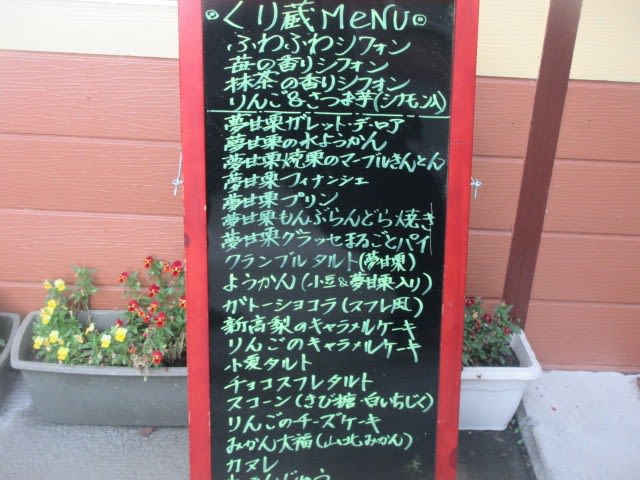 くり蔵MeNU
ふわふわシフォン
苺の香りシフォン
抹茶の香りシフォン
りんご&さつま芋(シナモン入)
夢甘栗ガレット・デ・ロア
夢甘栗の水ようかん
夢甘栗焼栗のマーブルきんとん
夢甘栗フィナンシェ
夢甘栗プリン
夢甘栗もんぶらんどら焼き
夢甘栗グラッセまるごとパイ
クランブルタルト(夢甘栗)
ようかん(小豆&夢甘栗入り)
ガトーショコラ(スフレ風)
新高梨のキャラメルケーキ
りんごのキャラメルケーキ
小栗タルト
チョコスフレタルト
スコーン(きび糖・白いちじく)
りんごのチーズケーキ
みかん大福(山北みかん)
カヌレ